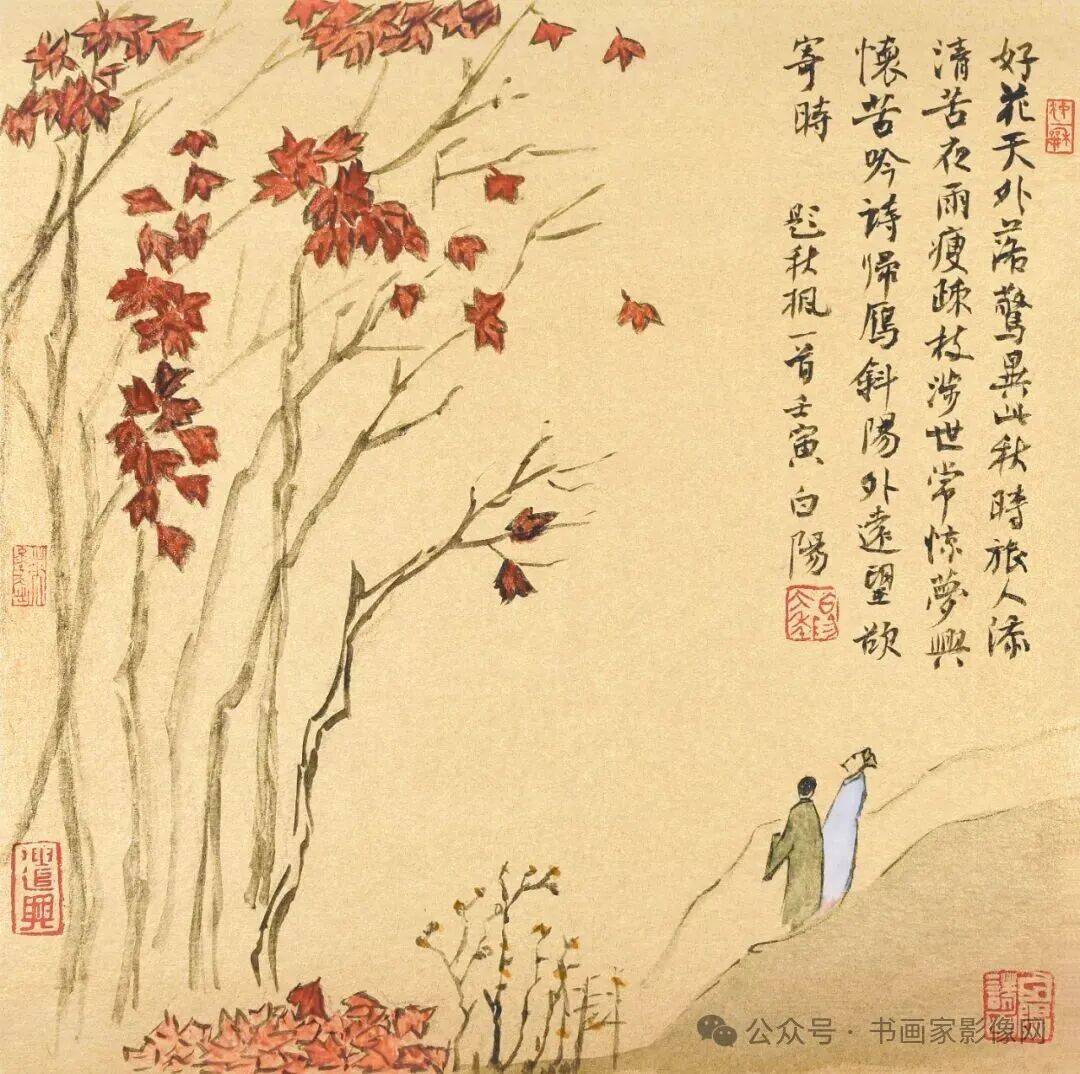 好花天外落驚異此秋時旅人添
清苦夜雨瘦疎枝涉世常惊夢興
懷苦吟詩歸鴈斜陽外遠望欲
寄時 題秋楓一首壬寅白陽
遣興
公众号 · 书画家影像网